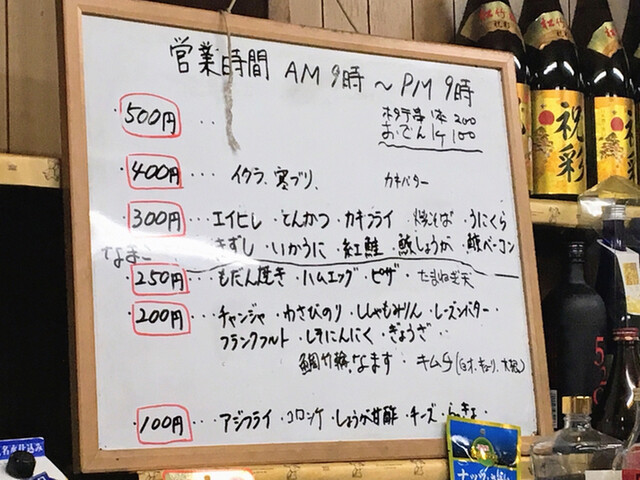 営業時間 AM 9時 ～ PM 9時
・500円 ・・・
ホタテ串1本 200
おでん1ヶ 100
・400円 ・・・ イクラ、寒ブリ、 カキバター
・300円 ・・・ エイヒレ ・とんかつ ・カキフライ 焼そば ・うにくら
なまこ きずし ・いかうに ・紅鮭 ・鯨しょうが ・鯨ベーコン
・250円 ・・・ もだん焼き ・ハムエッグ ・ピザ ・たまねぎ天
・200円 ・・・ チャンジャ ・わさびのり ・ししゃもみりん ・レーズンバター
フランクフルト ・しそにんにく ・ぎょうざ
鯛竹輪 なます ・キムチ(白才、キュウリ、大根)
・100円 ・・・ アジフライ ・コロッケ ・しょうが甘酢 ・チーズ ・らっきょ
祝彩
祝彩
松竹梅